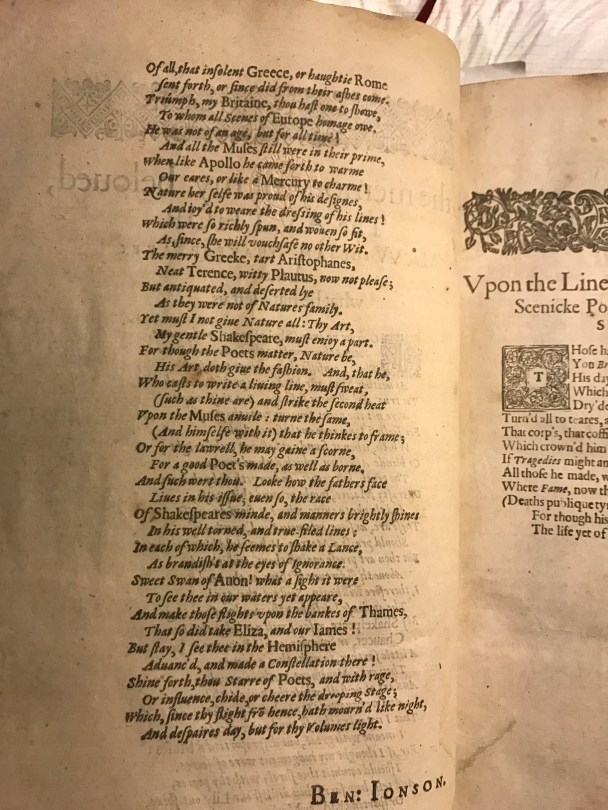 Of all, that inſolent Greece, or haughtie Rome
ſent forth, or ſince did from their aſhes come.
Triúmph, my Britaine, thou haſt one to ſhowe,
To whom all Scenes of Europe homage owe.
He was not of an age, but for all time!
And all the Muſes ſtill were in their prime,
when like Apollo he came forth to warme
Our eares, or like a Mercury to charme!
Nature her ſelfe was proud of his deſignes,
And ioy'd to weare the dreſſing of his lines!
which were ſo richly ſpun, and wouen ſo fit,
As, ſince, ſhe will vouchſafe no other Wit.
The merry Greeke, tart Ariſtophanes,
Neat Terence, witty Plautus, now not pleaſe;
But antiquated, and deſerted lye
As they were not of Natures family.
Yet muſt I not giue Nature all: Thy Art,
My gentle Shakeſpeare, muſt enioy a part.
For though the Poets matter, Nature be,
His Art doth giue the faſhion. And, that he,
Who caſts to write a liuing line, muſt ſweat,
(ſuch as thine are) and ſtrike the ſecond heat
Vpon the Muſes anuile: turne the ſame,
(And himſelfe with it) that he thinkes to frame;
Or for the lawrell, he may gaine a ſcorne,
For a good Poet's made, as well as borne.
And ſuch wert thou. Looke how the fathers face
Liues in his iſſue, euen ſo, the race
Of Shakeſpeares minde, and manners brightly ſhines
In his well torned, and true-filed lines:
In each of which, he ſeemes to ſhake a Lance,
As brandiſh't at the eyes of Ignorance.
Sweet Swan of Auon! what a ſight it were
To ſee thee in our waters yet appeare,
And make thoſe flights vpon the bankes of Thames,
That ſo did take Eliza, and our Iames!
But ſtay, I ſee thee in the Hemiſphere
Aduanc'd, and made a Conſtellation there!
Shine forth, thou Starre of Poets, and with rage,
Or influence, chide, or cheere the drooping Stage;
Which, ſince thy flight frõ hence, hath mourn'd like night,
And deſpaires day, but for thy Volumes light.
BEN: IONSON.
Vpon the Line
Scenicke Po
S
THoſe h
You Br
His day
Which
Dry'de
Turn'd all to teares, a
That corp's, that coffi
Which crown'd him
If Tragedies might an
All thoſe he made, w
Where Fame, now th
(Deaths publique tyr
For though his
The life yet of